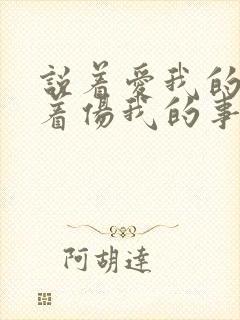 說着愛我的
着傷我的事
阿胡達